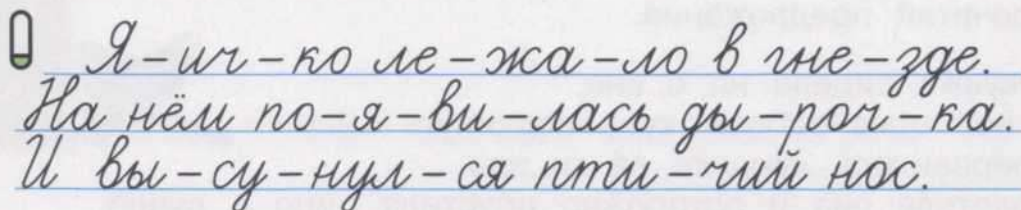 Я-ич-ко ле-жа-ло в гне-зде.
На нём по-я-ви-лась ды-роч-ка.
И вы-су-нул-ся пти-чий нос.